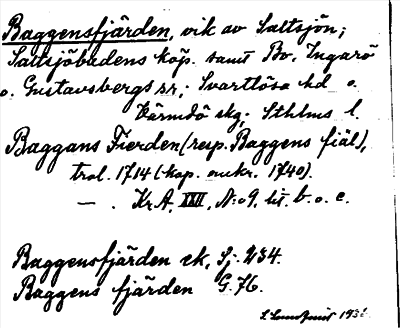 Baggensfjärden, vik av Saltsjön;
Saltsjöbadens köp. samt Bo, Ingarö
o. Gustavsbergs srr; Svartlösa hd o.
Värmdö skg; Sthlms l.
Baggans Fierden (resp. Baggens fiäl),
trol. 1714 (kop. omkr. 1740).
— . Kr. A, XXII, N:o 9, lit. b. o. c.
Baggensfjärden ek, Sj. 234.
Baggens fjärden G. 76.